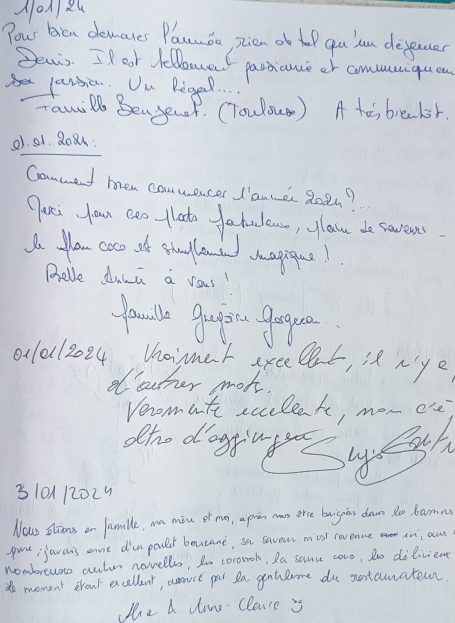 1/01/24
Pour bien démarrer l'année, rien de tel qu'un déjeuner
Denis. Il est tellement passionné et communique en
sa passion. Un Régal....
Famille (Toulouse) A très bientôt.
01.01.2024.
Comment bien commencer l'année 2024 ?...
Merci pour ces plats fabuleux, plein de saveurs -
le flan coco est simplement magique !
Belle Année à vous !
famille Grégoire
01/01/2024 Vraiment excellent, il n'y a
d'autres mots.
Veramente eccellente, non c'è
altro d'aggiungere
3/01/2024
Nous étions en famille, ma mère et moi, après nous être baignés dans les bassins
j'avais envie d'un poulet boucané, sa saveur m'est revenue ici, aux
nombreuses autres la sauce coco, les délicieux
le moment étant excellent, par la gentillesse du restaurateur.
& Anne-Claire